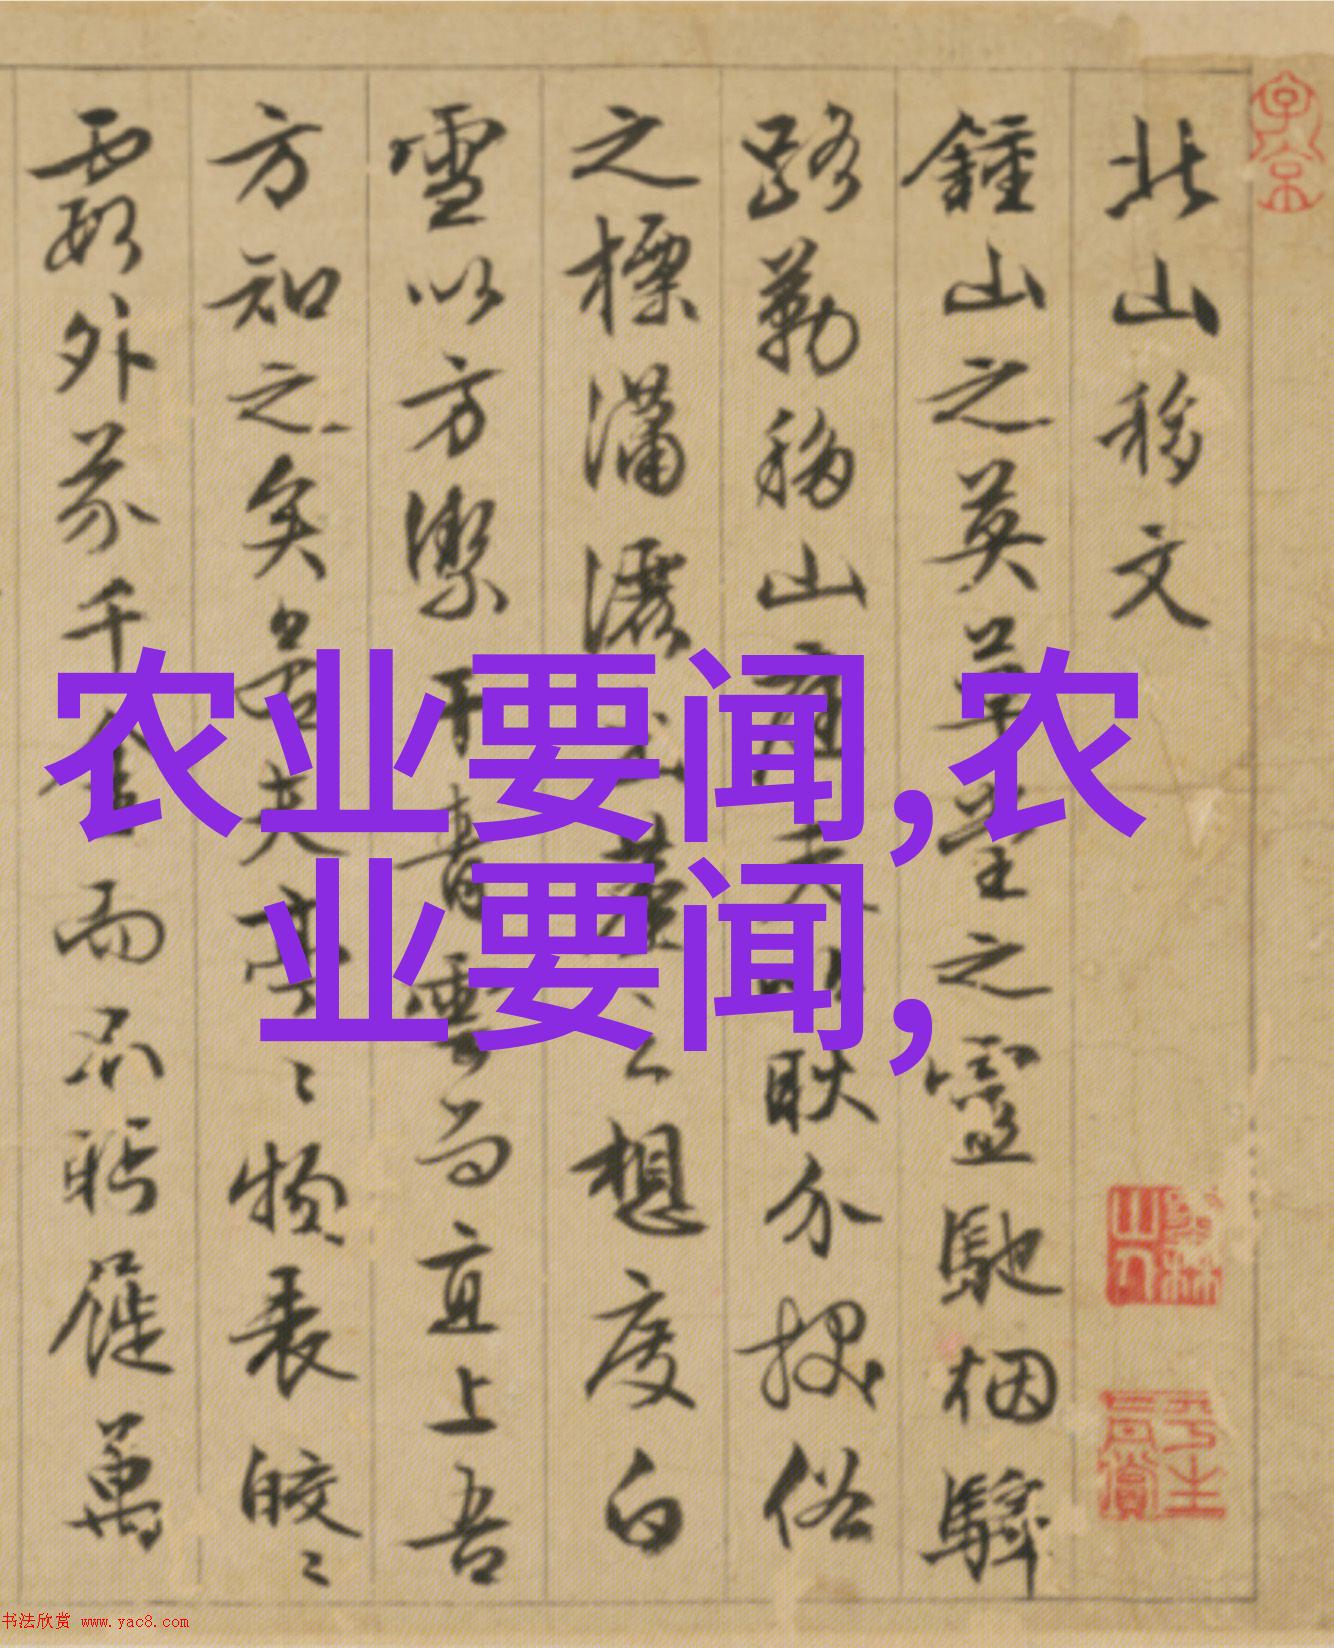 北山移文
鍾山之英草堂之靈馳煙驛
路勒移山庭夫以耿介拔俗
之標瀟灑出塵之想度白
雪以方潔干青雲而直上吾
方知之矣若其亭亭物表皎皎
霞外芥千金而不盻屣萬
农业要闻,农
业要闻,
书法欣赏 www.yac8.com